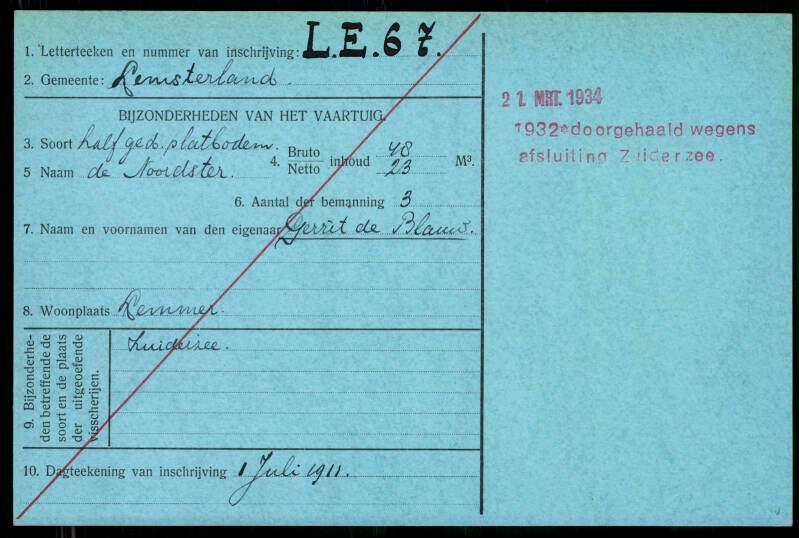 1. Letterteeken en nummer van inschrijving: L.E.67.
2. Gemeente: Lemsterland.
BIJZONDERHEDEN VAN HET VAARTUIG.
3. Soort half ged. platbodem. 4. Bruto / Netto inhoud 48 / 23 M³.
5 Naam de Noordster.
6. Aantal der bemanning 3
7. Naam en voornamen van den eigenaar Gerrit de Blauw.
8. Woonplaats Lemmer.
9. Bijzonderhe-
den betreffende de
soort en de plaats
der uitgeoefende
visscherijen.
Zuiderzee.
10. Dagteekening van inschrijving 1 Juli 1911.
21 MRT. 1934
1932 doorgehaald wegens
afsluiting Zuiderzee.